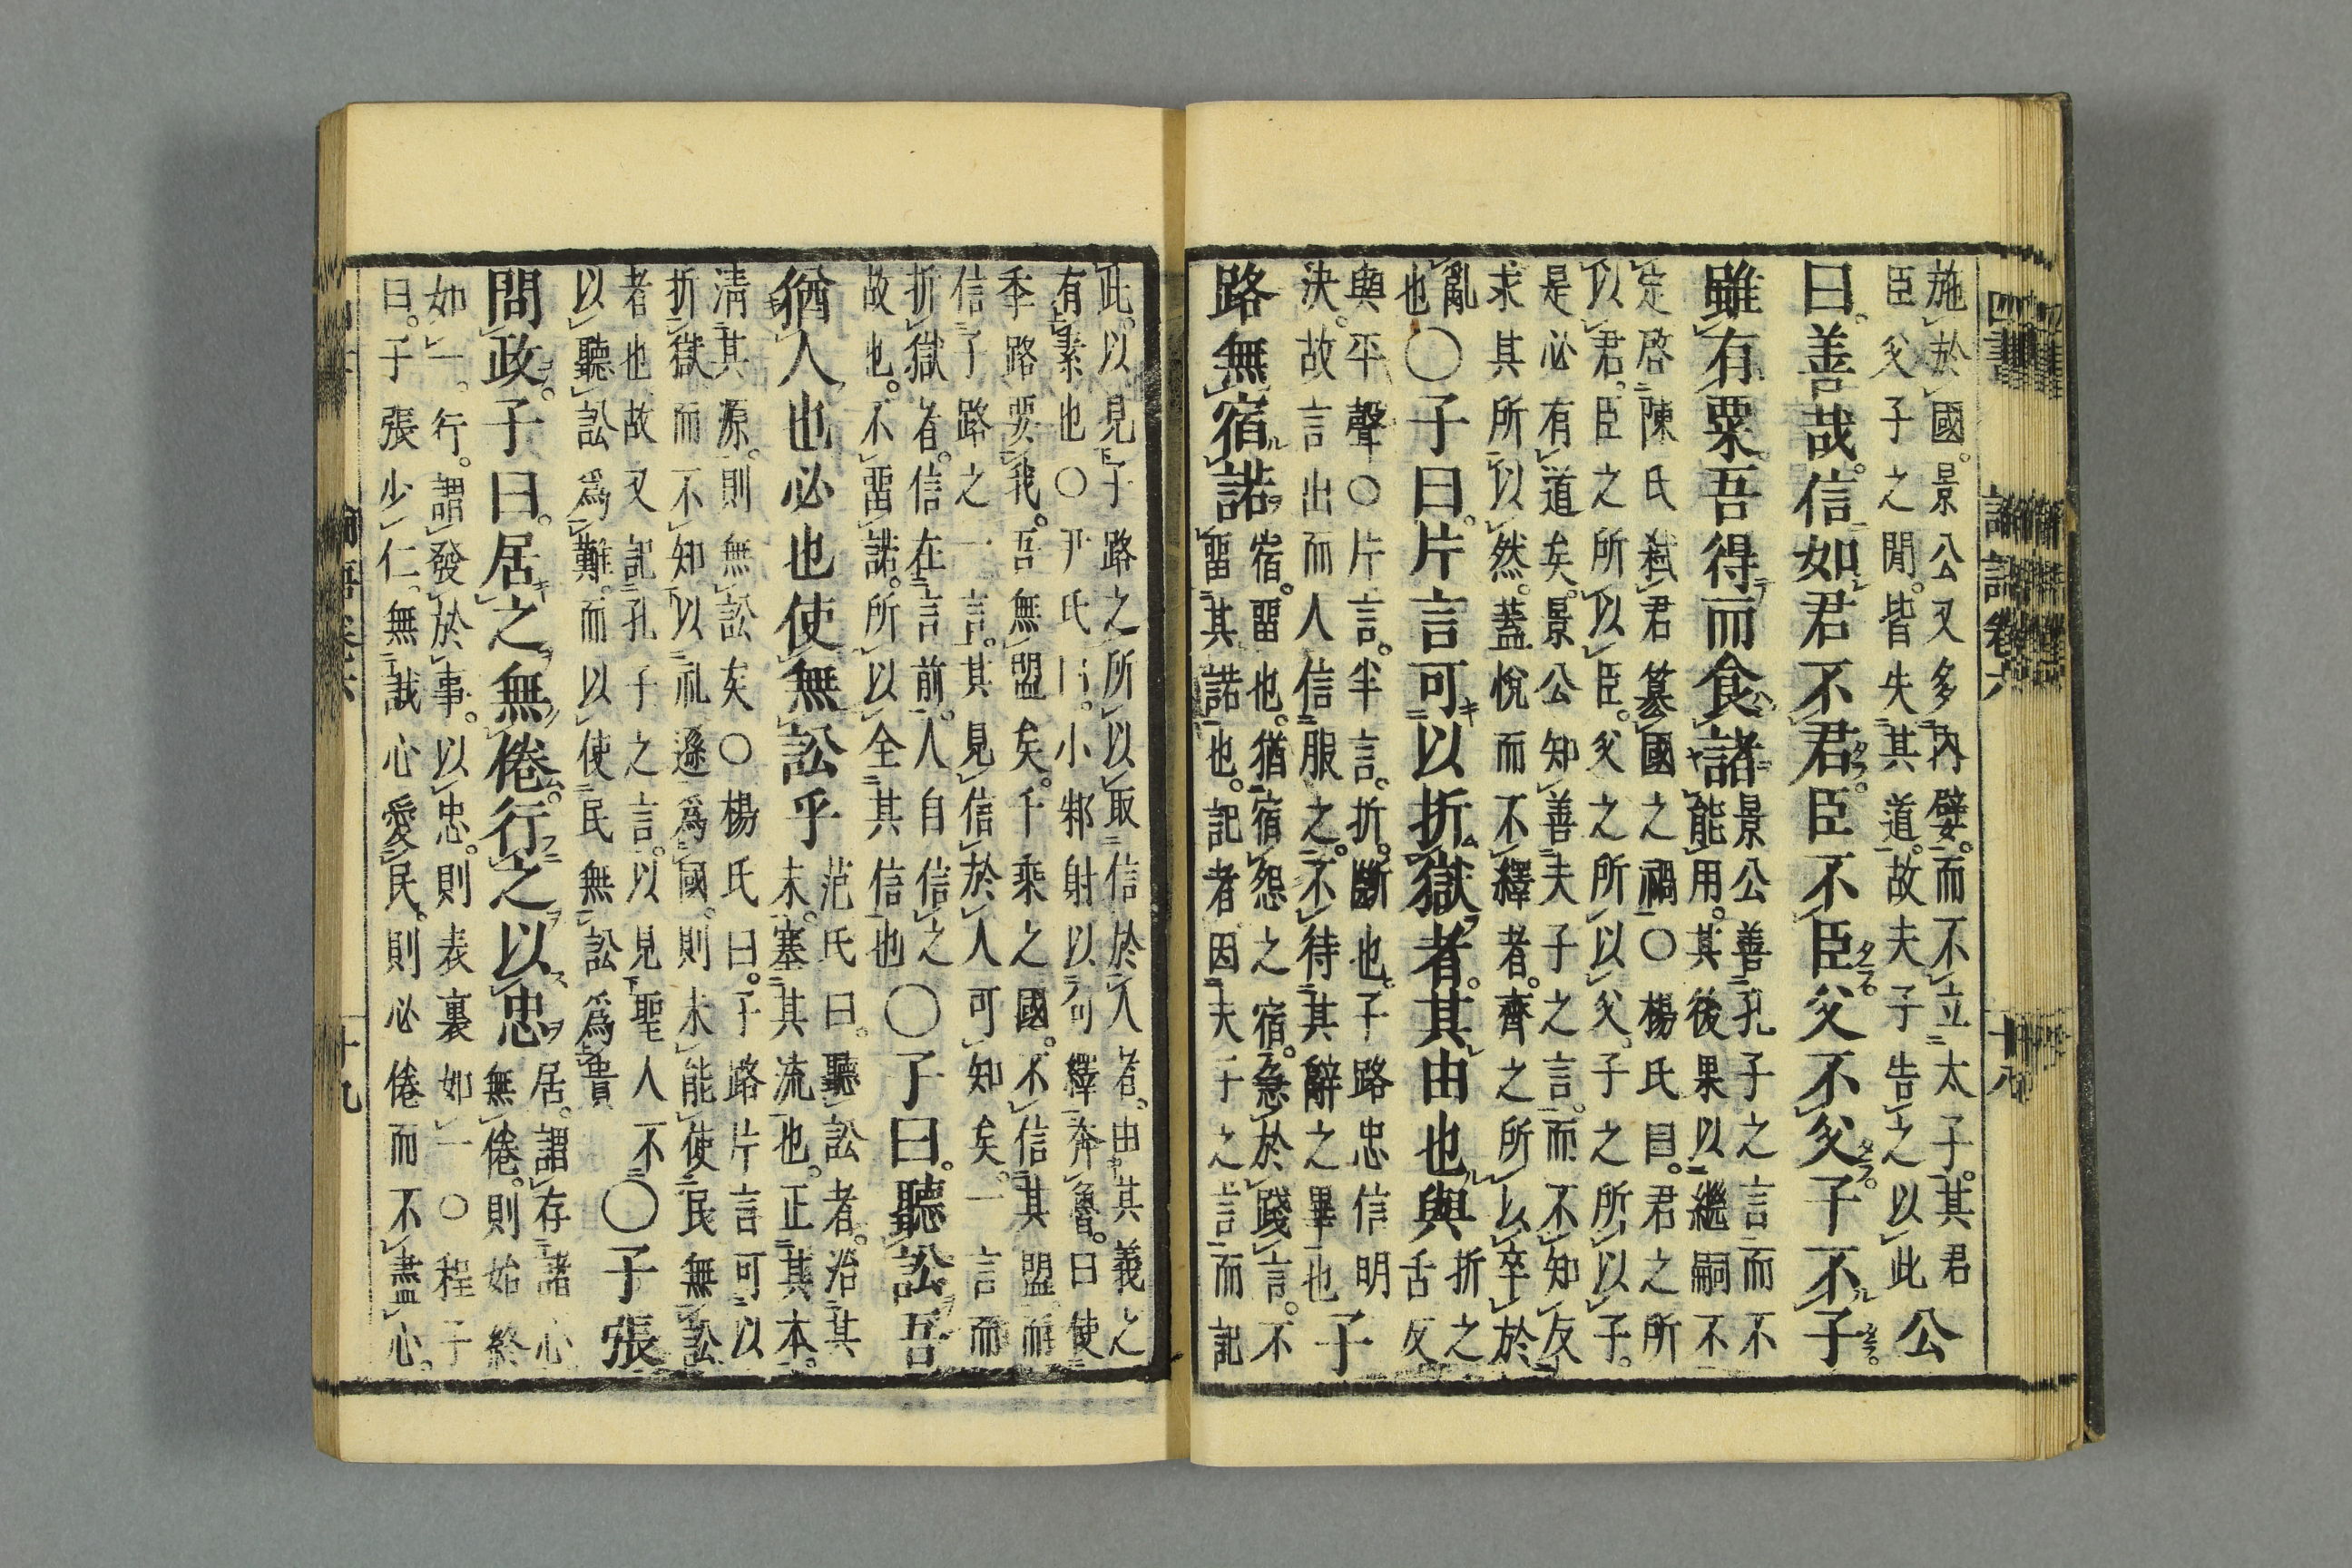 四書 論語卷六 十八
施於國。景公又多內嬖。而不立太子。其君
臣父子之閒。皆失其道。故夫子告之以此
公
曰。善哉。信如君不君。臣不臣。父不父。子不子。
雖有粟。吾得而食諸
景公善孔子之言而不
能用。其後果以繼嗣不
定啓陳氏弑君簒國之禍○楊氏曰。君之所
以君。臣之所以臣。父之所以父。子之所以子。
是必有道矣。景公知善夫子之言。而不知反
求其所以然。蓋悅而不繹者。齊之所以卒於
亂
也
○子曰。片言可以折獄者。其由也與
折之
舌反
與平聲○片言。半言。折。斷也。子路忠信明
決。故言出而人信服之。不待其辭之畢也
子
路無宿諾
宿。畱也。猶宿怨之宿。急於踐言。不
畱其諾也。記者因夫子之言而記
此。以見子路之所以取信於人者。由其養之
有素也○尹氏曰。小邾射以句繹奔魯。曰使
季路要我。吾無盟矣。千乗之國。不信其盟而
信子路之一言。其見信於人可知矣。一言而
折獄者。信在言前。人自信之
故也。不畱諾。所以全其信也
○子曰。聽訟吾
猶人也必也使無訟乎
范氏曰。聽訟者。治其
末。塞其流也。正其本。
清其源。則無訟矣○楊氏曰。子路片言可以
折獄而不知以礼遜爲國。則未能使民無訟
者也故又記孔子之言。以見聖人不
以聽訟爲難。而以使民無訟爲貴
○子張
問政。子曰。居之無倦。行之以忠
居。謂存諸心
無倦。則始終
如一。行。謂發於事。以忠。則表裏如一○程子
曰。子張少仁。無誠心愛民。則必倦而不盡心。